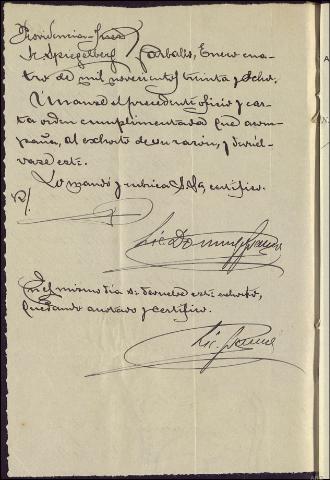 Providencia-Juez
Sr. Spiegelberg Carballo, Enero cua-
tro de mil novecientos treinta y ocho.
Unanse el precedente oficio y car-
ta orden cumplimentada que acom-
paña, al exhorto de su razón, y devuél-
vase este.
Lo mandó y rubrica S.Sª, certifico.
D/.
Lic. Domingo
En el mismo dia se devuelve este exhorto,
quedando anotado y certifico.
Lic.